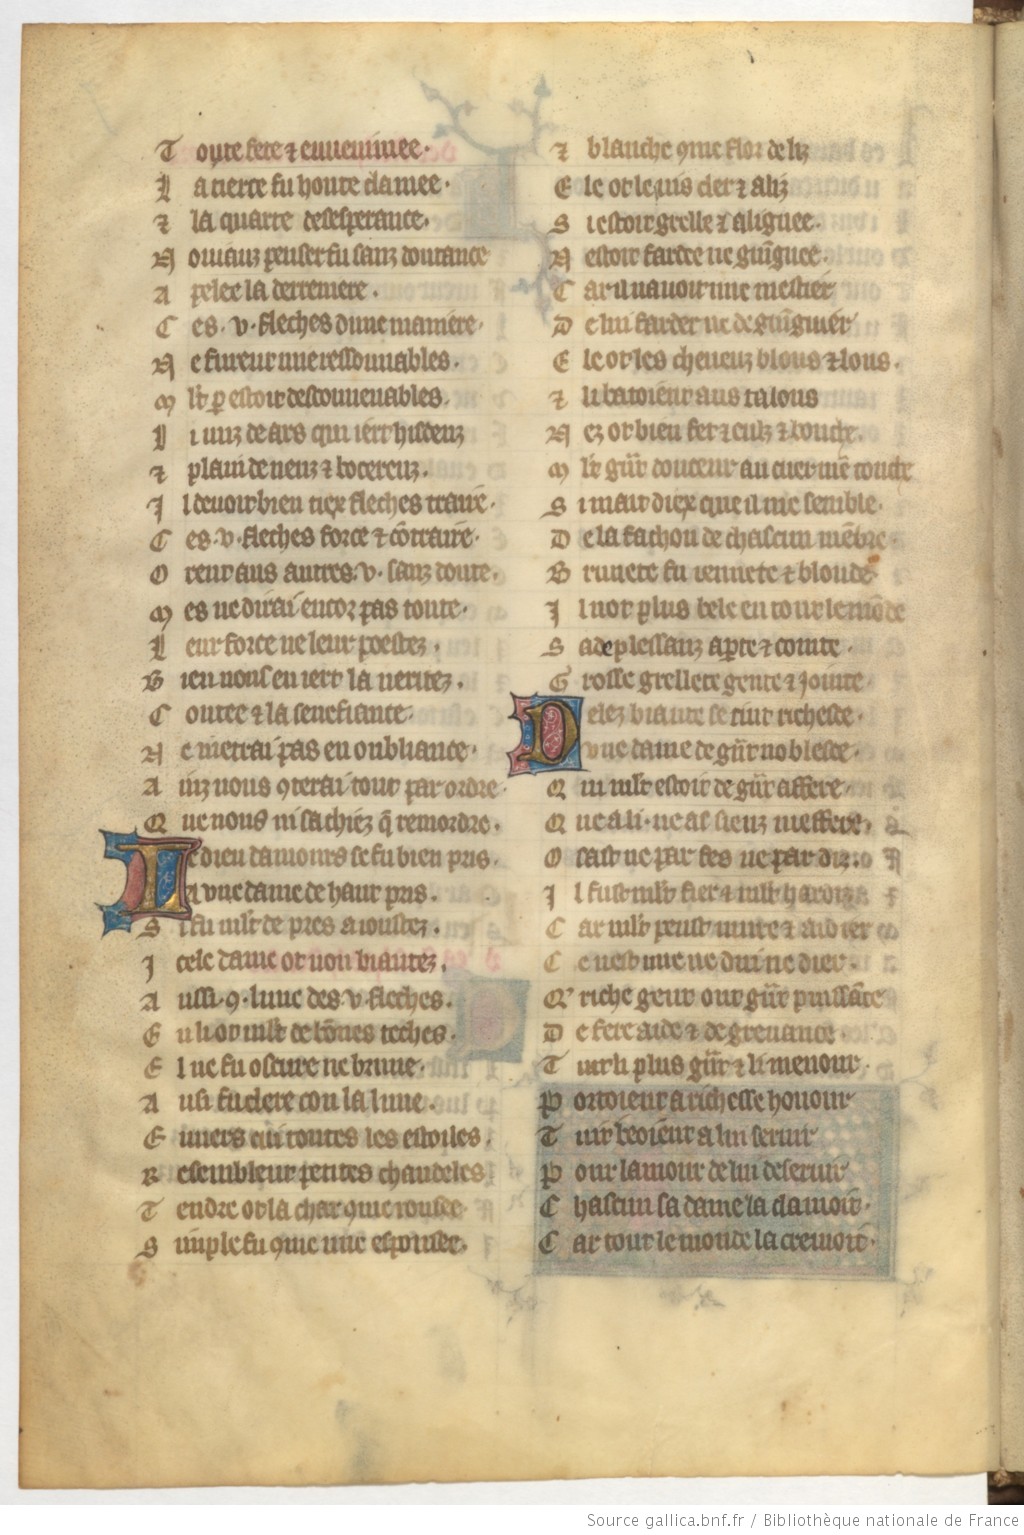 T oute fete ⁊ enveninee.
L a tierce fu honte clamee.
⁊ la quarte desesperance.
N ouviauz penser fu sanz doutance
A pelee la derreniere.
C es .v. fleches dune maniere.
N e furent mie ressonnables.
M lt p estoit desconvenables.
L i uns de ars qui iert hisdeuz
⁊ plain de neuz ⁊ bocereuz.
I l devoit bien tiex fleches traire.
C es .v. fleches force ⁊ cōtraire.
O rent aus autres .v. sanz doute.
M es ne dirai encor pas toute.
L eur force ne leur poestez.
B ien nous en iert la veritez.
C ontee ⁊ la senefiance.
N e metrai pas en oubliance.
A inz nous 9terai tout par ordre.
Q ue nous ni sachiez q̄ remordre.
L e dieu damours se fu bien pris.
A une dame de haut pris.
S i fu mlt de pres aioustez.
I cele dame ot non biautez.
A ussi .9. lune des .v. fleches.
E n li ot mlt de bōnes teches.
E l ne fu oscure ne brune.
A usi fu clere con la lune.
E nvers cui toutes les estoiles.
R esemblent petites chandeles
T endre ot la char 9me rousee
S imple fu 9me une espousee.
⁊ blanche 9me flor de liz
E le ot le vis cler ⁊ aliz
S i estoit grelle ⁊ alignee.
N estoit fardee ne guignee.
C ar il navoit mie mestier
D e lui farder ne de guignier
E le ot les cheveuz blons ⁊ lons.
⁊ li batoient aus talons
N ez ot bien fet ⁊ eulz ⁊ bouche.
M lt gūt douceur au cuer me touche
S i mait diex que il me semble.
D e la fachon de chascun mēbre
B runete fu iennete ⁊ blonde
I l not plus bele en tout le mōde
S ade plessanz aperte ⁊ cointe.
G rosse grellete gente ⁊ jointe.
D elez biaute se tint richesce.
U ne dame de gūt noblesce.
Q ui mlt estoit de gūt affere.
Q ue a li. ne as siens meffere.
O sast ne par fes ne par diz.
I l fust mlt fier ⁊ mlt hardiz
C ar mlt peust nuire ⁊ aidier
C e nest mie ne dui ne dier.
Q riche gent ont gūt puissāce
D e fere aide ⁊ de grevance.
T uit li plus gūt ⁊ li menour
P ortoient a richesse honour
T uit beoient a lui servir
P our lamour de lui deservir
C hascun sa dame la clamoit.
C ar tout le monde la cremoit.
Source gallica.bnf.fr / Bibliothèque nationale de France